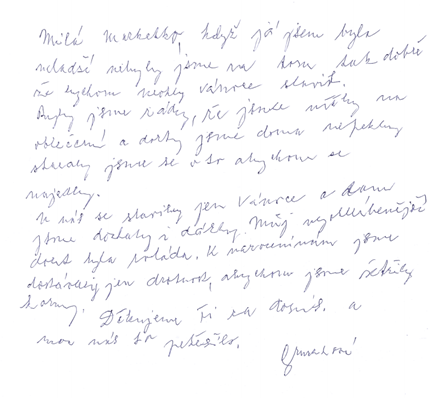 Milá Marketko, když já jsem byla
mladší nebyly jsme na tom tak dobře
že bychom mohly vánoce slavit.
Byly jsme rády, že jsme měly na
oblečení a dorty jsme doma nepekly
staraly jsme se o to abychom se
najedly.
U nás se slavily jen Vánoce a tam
jsme dostaly i dárky. Můj nejoblíbenější
dort byla roláda. K narozeninám jsme
dostávaly jen drobnost, abychom jsme šetřily
Děkujeme Ti za dopis. a
moc nás to potěšilo.